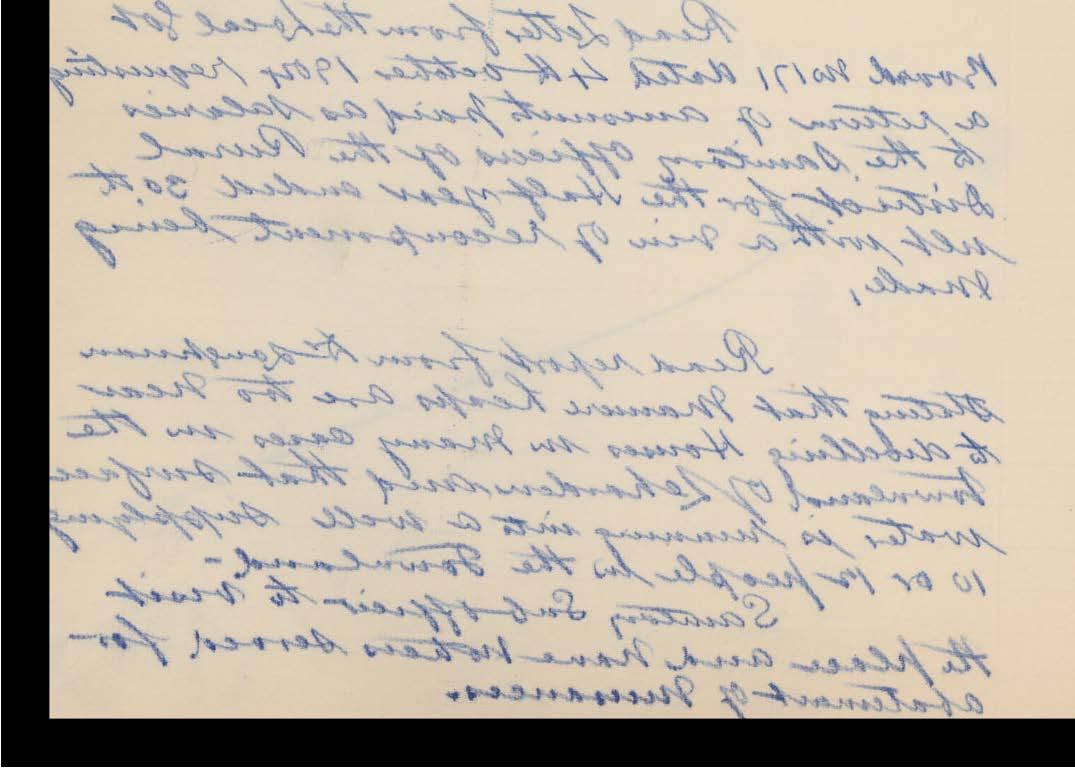 Read Letter from the Local Govt
Board No 171 dated 4th October 1904 requesting
a return of amounts paid as salaries
to the Sanitary Officers of the Rural
District for the Half year ended 30th
with a view of recoupment being
made,
Read report from Dr
stating that Manure heaps are too near
to dwelling Houses in many cases in the
Townland of and that surface
water is running into a well supplying
10 or 12 people in the Townland -
Sanitary Sub-officer to visit
the place and have notices served for
abatement of Nuisances.